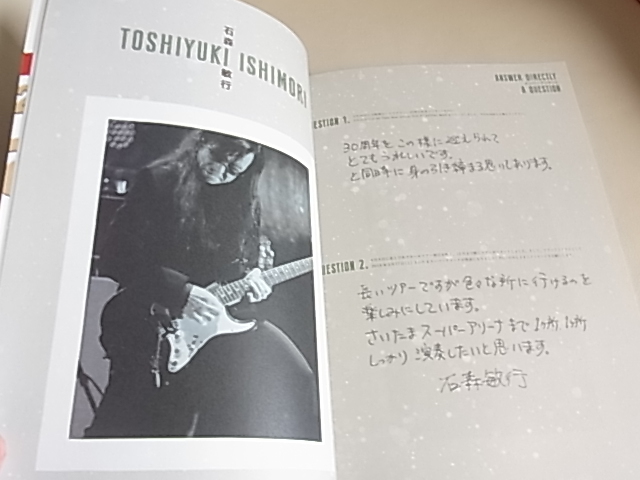 石森敏行
TOSHIYUKI ISHIMORI
ANSWER DIRECTLY
A QUESTION
QUESTION 1.
30周年をこの様に迎えられて
とてもうれしいです。
と同時に身の引き締まる思いもあります。
QUESTION 2.
長いツアーですが色々な所に行けるのを
楽しみにしています。
さいたまスーパーアリーナまで1ヶ所1ヶ所
しっかり演奏したいと思います。
石森敏行